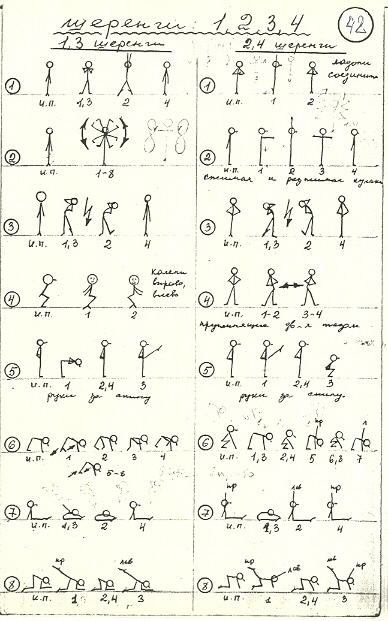 шеренги: 1, 2, 3, 4
42
1,3 шеренги
2,4 шеренги
1
и.п. 1,3 2 4
1
и.п. 1 2
ладони соединить
2
и.п. 1-8
2
и.п. 1 2 3 4
сжимая и разжимая кулаки
3
и.п. 1,3 2 4
3
и.п. 1,3 2 4
4
и.п. 1 2
колени вправо, влево
4
и.п. 1-2 3-4
пружинящие
5
и.п. 1 2,4 3
руки за спину
5
и.п. 1 2,4 3
руки за спину.
6
и.п. 1 2 3 4
5-8
6
и.п. 1,3 2,4 5 6,8 7
пр л
7
и.п. 1,3 2 4
7
и.п. 1,3 2 4
пр лев пр
8
и.п. 1 2,4 3
пр лев
8
и.п. 1 2,4 3
пр лев лев пр